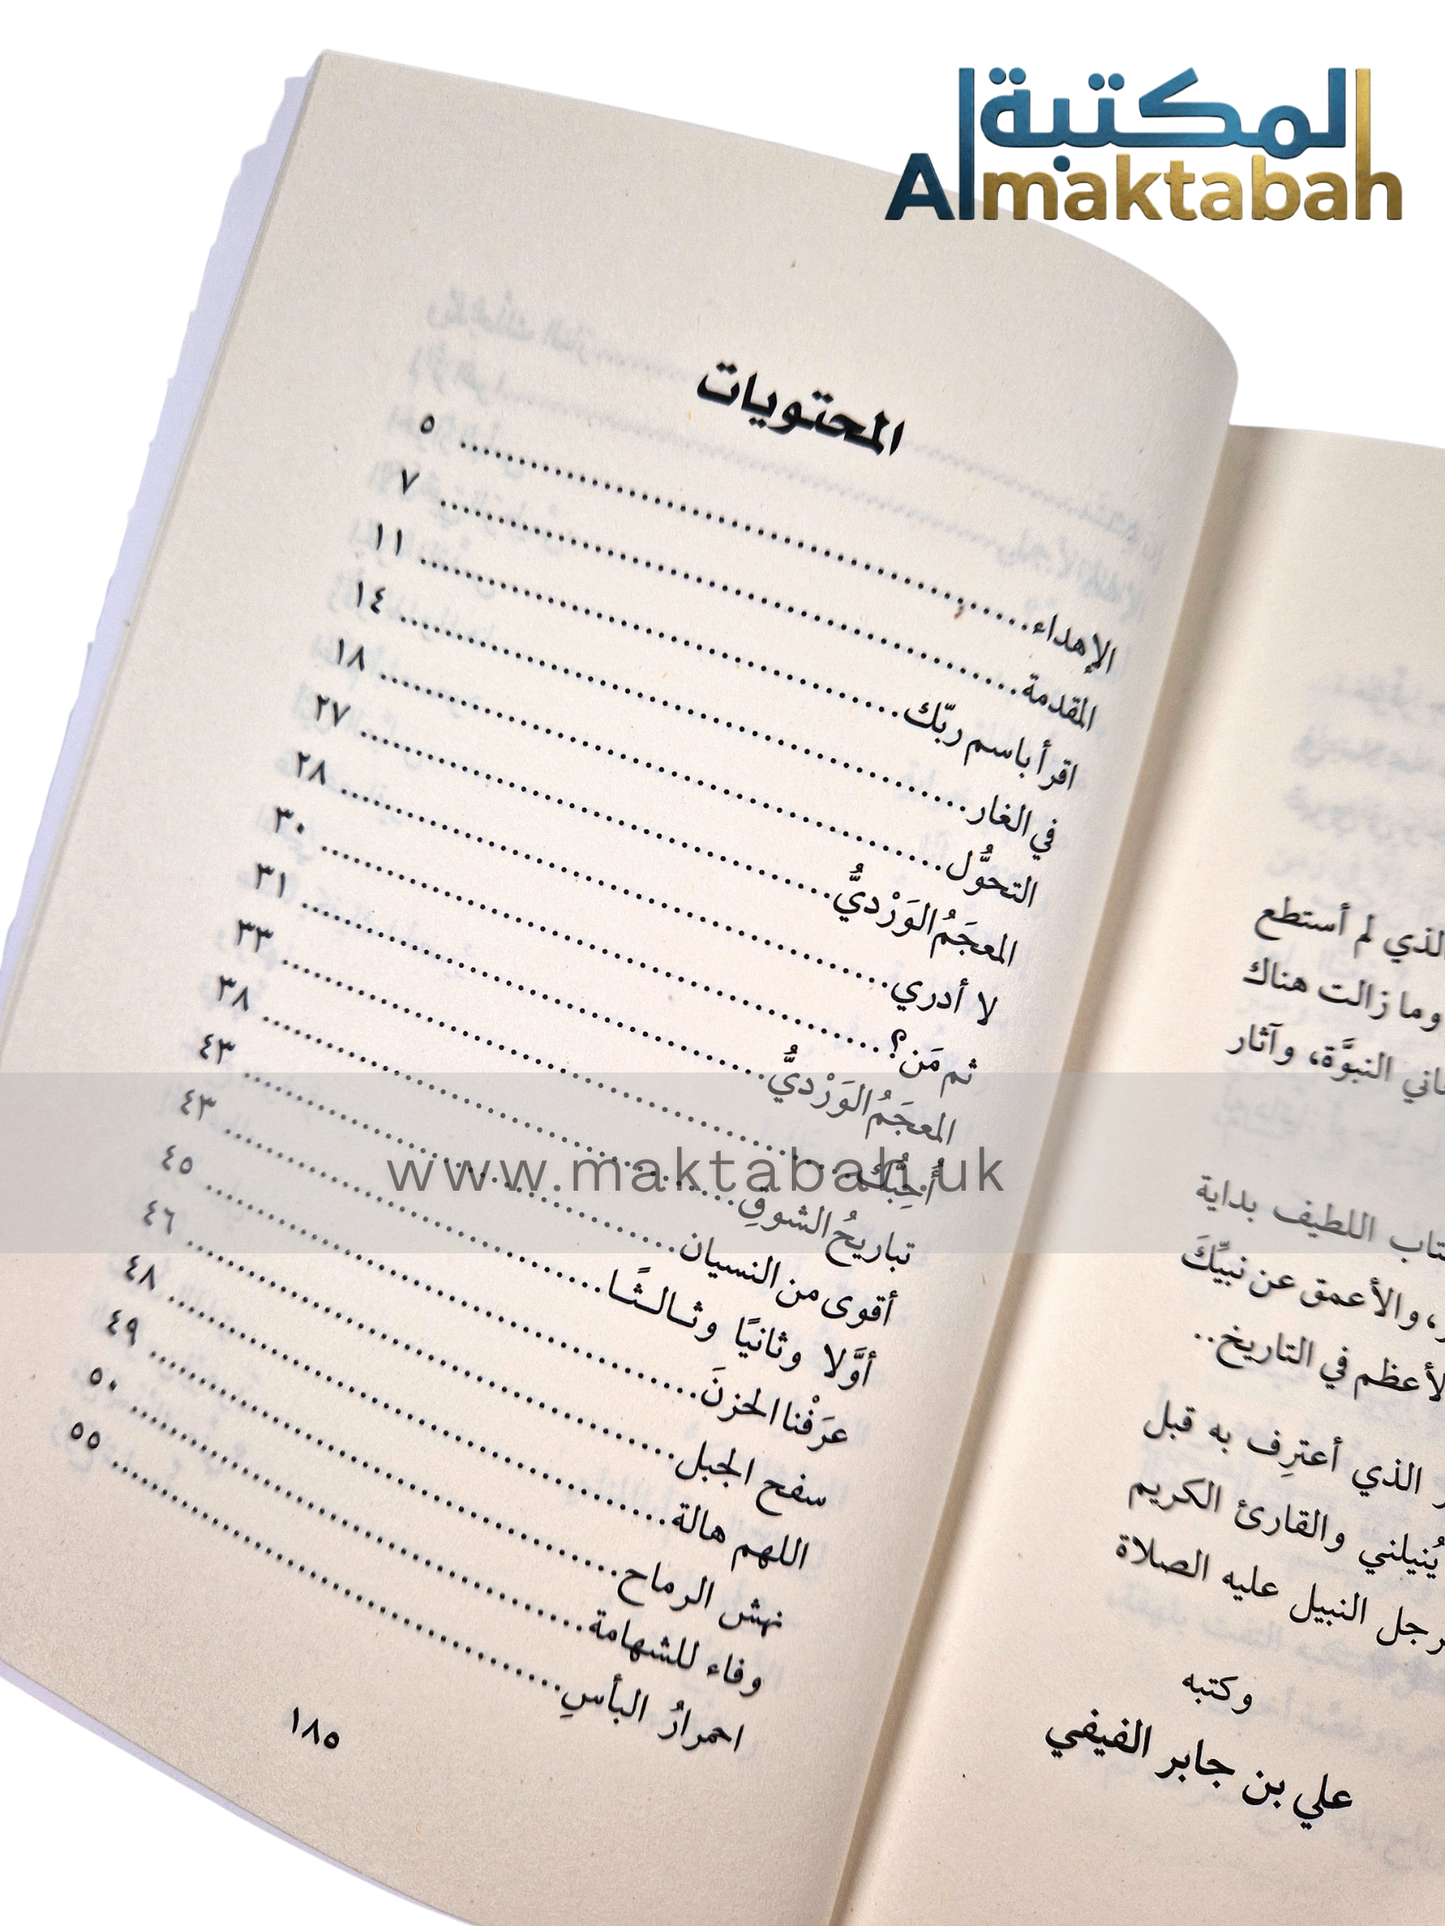 المكتبة
Almaktabah
المحتويات
الإهداء ٥
المقدمة ٧
اقرأ باسم ربّك ١١
في الغار ١٤
التحوُّل ١٨
المعجَمُ الوَرْديُّ ٢٧
لا أدري ٢٨
ثم مَن؟ ٣٠
المعجَمُ الوَرْديُّ ٣١
أُحِبُّك ٣٣
تباريحُ الشوقِ ٣٨
أقوى من النسيان ٤٣
أوَّلا وثانيًا وثالثًا ٤٣
عرَفْنا الحزنَ ٤٥
سفح الجبل ٤٦
اللهم هالة ٤٨
نهش الرماح ٤٩
وفاء للشهامة ٥٠
احمرارُ البأسِ ٥٥
١٨٥
www.maktabah.uk
لذي لم أستطع
وما زالت هناك
النبوَّة، وآثار
تاب اللطيف بداية
، والأعمق عن نبيِّكَ
لأعظم في التاريخ..
الذي أعترِف به قبل
يُنيلني والقارئ الكريم
رجل النبيل عليه الصلاة
وكتبه
علي بن جابر الفيفي